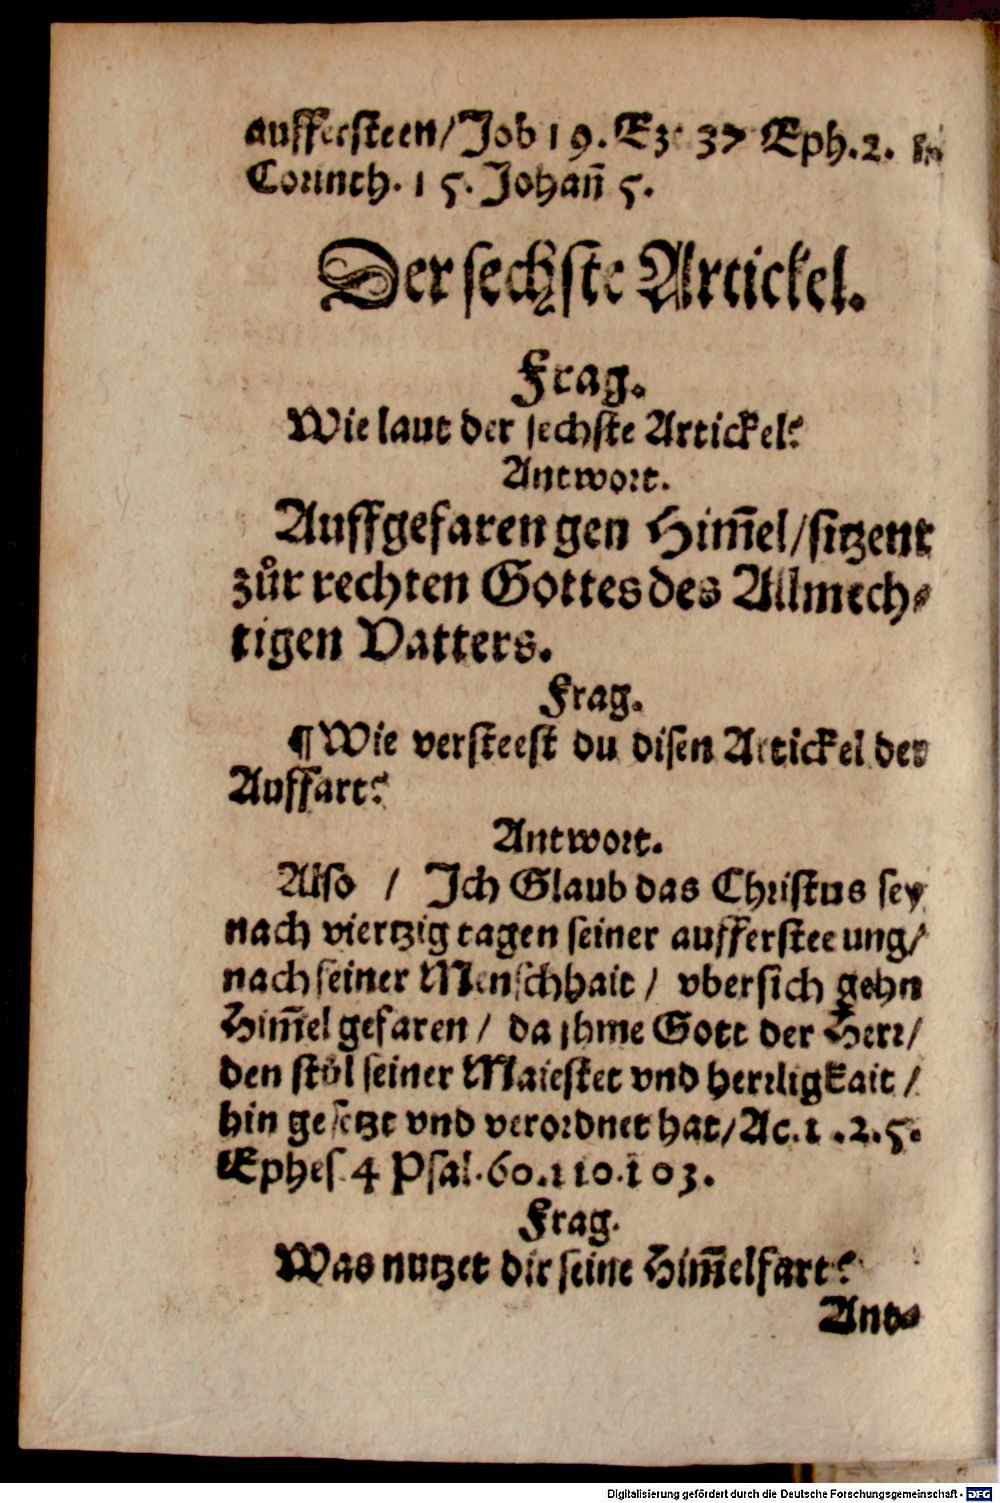 auffersteen/Job 19. Ez 37 Eph.2.
Corinth. 15. Johan̄ 5.
Der sechste Artickel.
Frag.
Wie laut der sechste Artickel?
Antwort.
Auffgefaren gen Him̄el/sitzent
zůr rechten Gottes des Allmech-
tigen Vatters.
Frag.
¶ Wie versteest du disen Artickel der
Auffart?
Antwort.
Also / Ich Glaub das Christus sey
nach viertzig tagen seiner auffersteeung/
nach seiner Menschhait / vbersich gehn
Him̄el gefaren / da jhme Gott der Herr/
den stůl seiner Maiestet vnd herrligkait /
hin gesetzt vnd verordnet hat/Ac.1.2.5.
Ephes 4 Psal.60.110.103.
Frag.
Was nutzet dir seine Him̄elfart?
Ant-
Digitalisierung gefördert durch die Deutsche Forschungsgemeinschaft - DFG